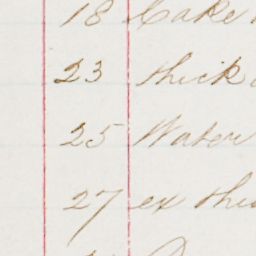 18 Cake
23 thick
25 Water
27 ex thi